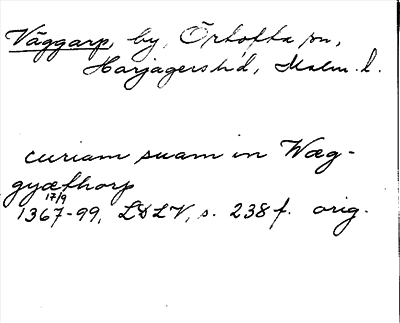 Väggarp, by, Örtofta sn,
Harjagers hd, Malm. l.
curiam suam in Wæg-
gyæthorp
17/9
1367-99, LDLV, s. 238 f. orig.